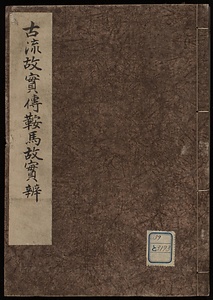 古流故實傳鞍馬故實辨